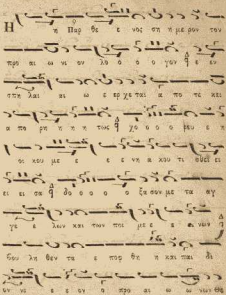 Η η Παρ θε ε νος ση η με ρον τον
προ αι ω νι ον λο ο ο ο γον εν
σπη λαι αι ω ε ερ χε ται α πο τε κει
α πο ρη η η τως χο ο ο ρε ευ
οι κου με ε ε ε νη α κου τι σθει
ει σα δο ο ο ξα σον με τα αγ
γε ε λων και των ποι με ε ε νων
βου λη θεν τα ε πο φθη η και παι δι
ον νε ε ε ον ο προ αι ω ω νων